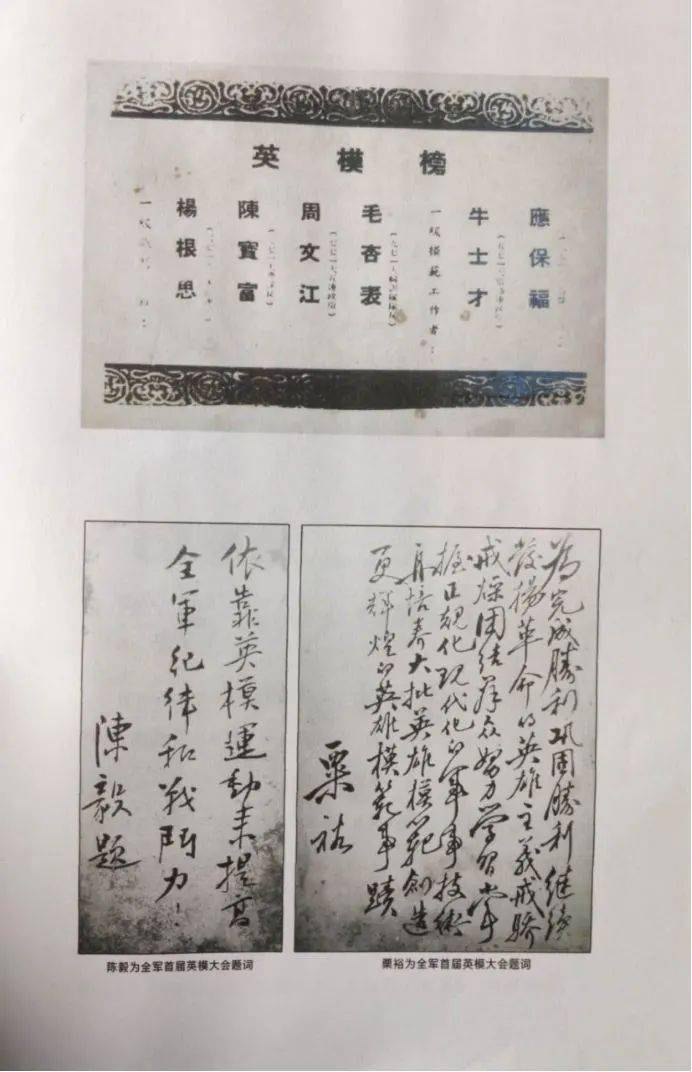 英模榜
一級
楊根思
陳寶富
周文江
毛杏表
一級模範工作者：
牛士才
應保福
依靠英模運動来提高
全軍紀律和戰鬥力！
陳毅題
為完成勝利巩固勝利继续
發揚革命的英雄主義戒驕
戒燥团结群众努力学習掌
握正規化現代化的軍事技術
并培养大批英雄模范創造
更輝煌的英雄模範事蹟
粟裕
陈毅为全军首届英模大会题词
粟裕为全军首届英模大会题词